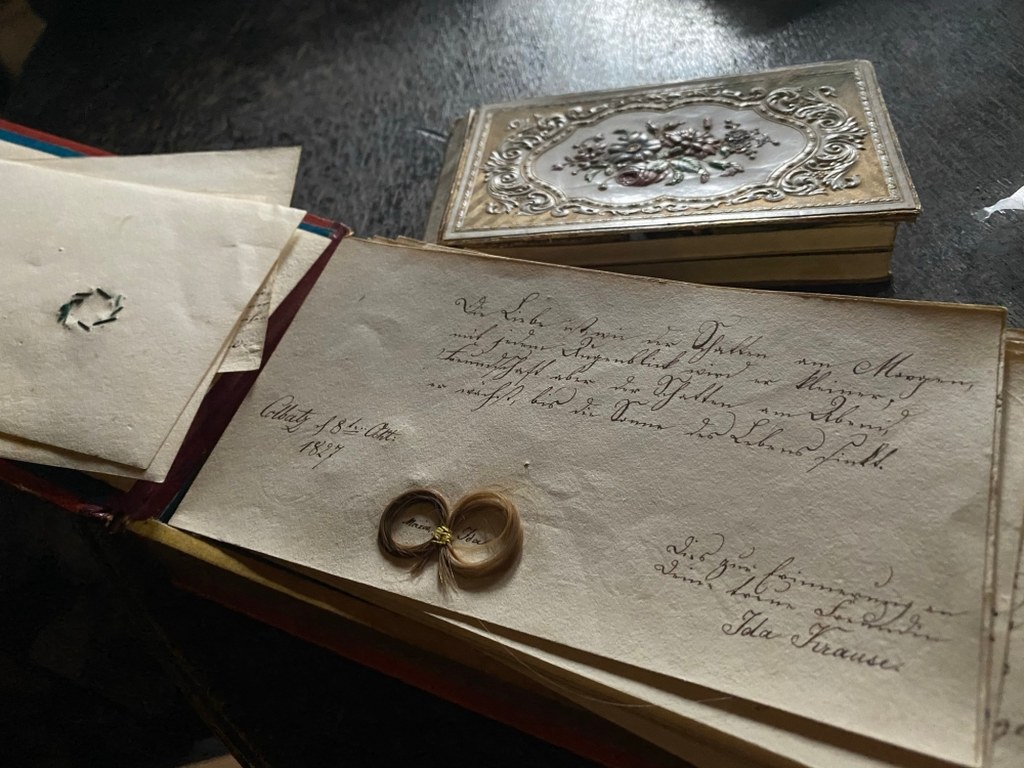 Die Liebe ist wie der Schatten am Morgen,
mit jedem Augenblick wird er kleiner,
Freundschaft aber der Schatten am Abend
er wächst, bis die Sonne des Lebens sinkt.
Colbatz d 8ten Oct.
1827
Ida
Dies zur Erinnerung an
Deine treue Freundin
Ida Krause